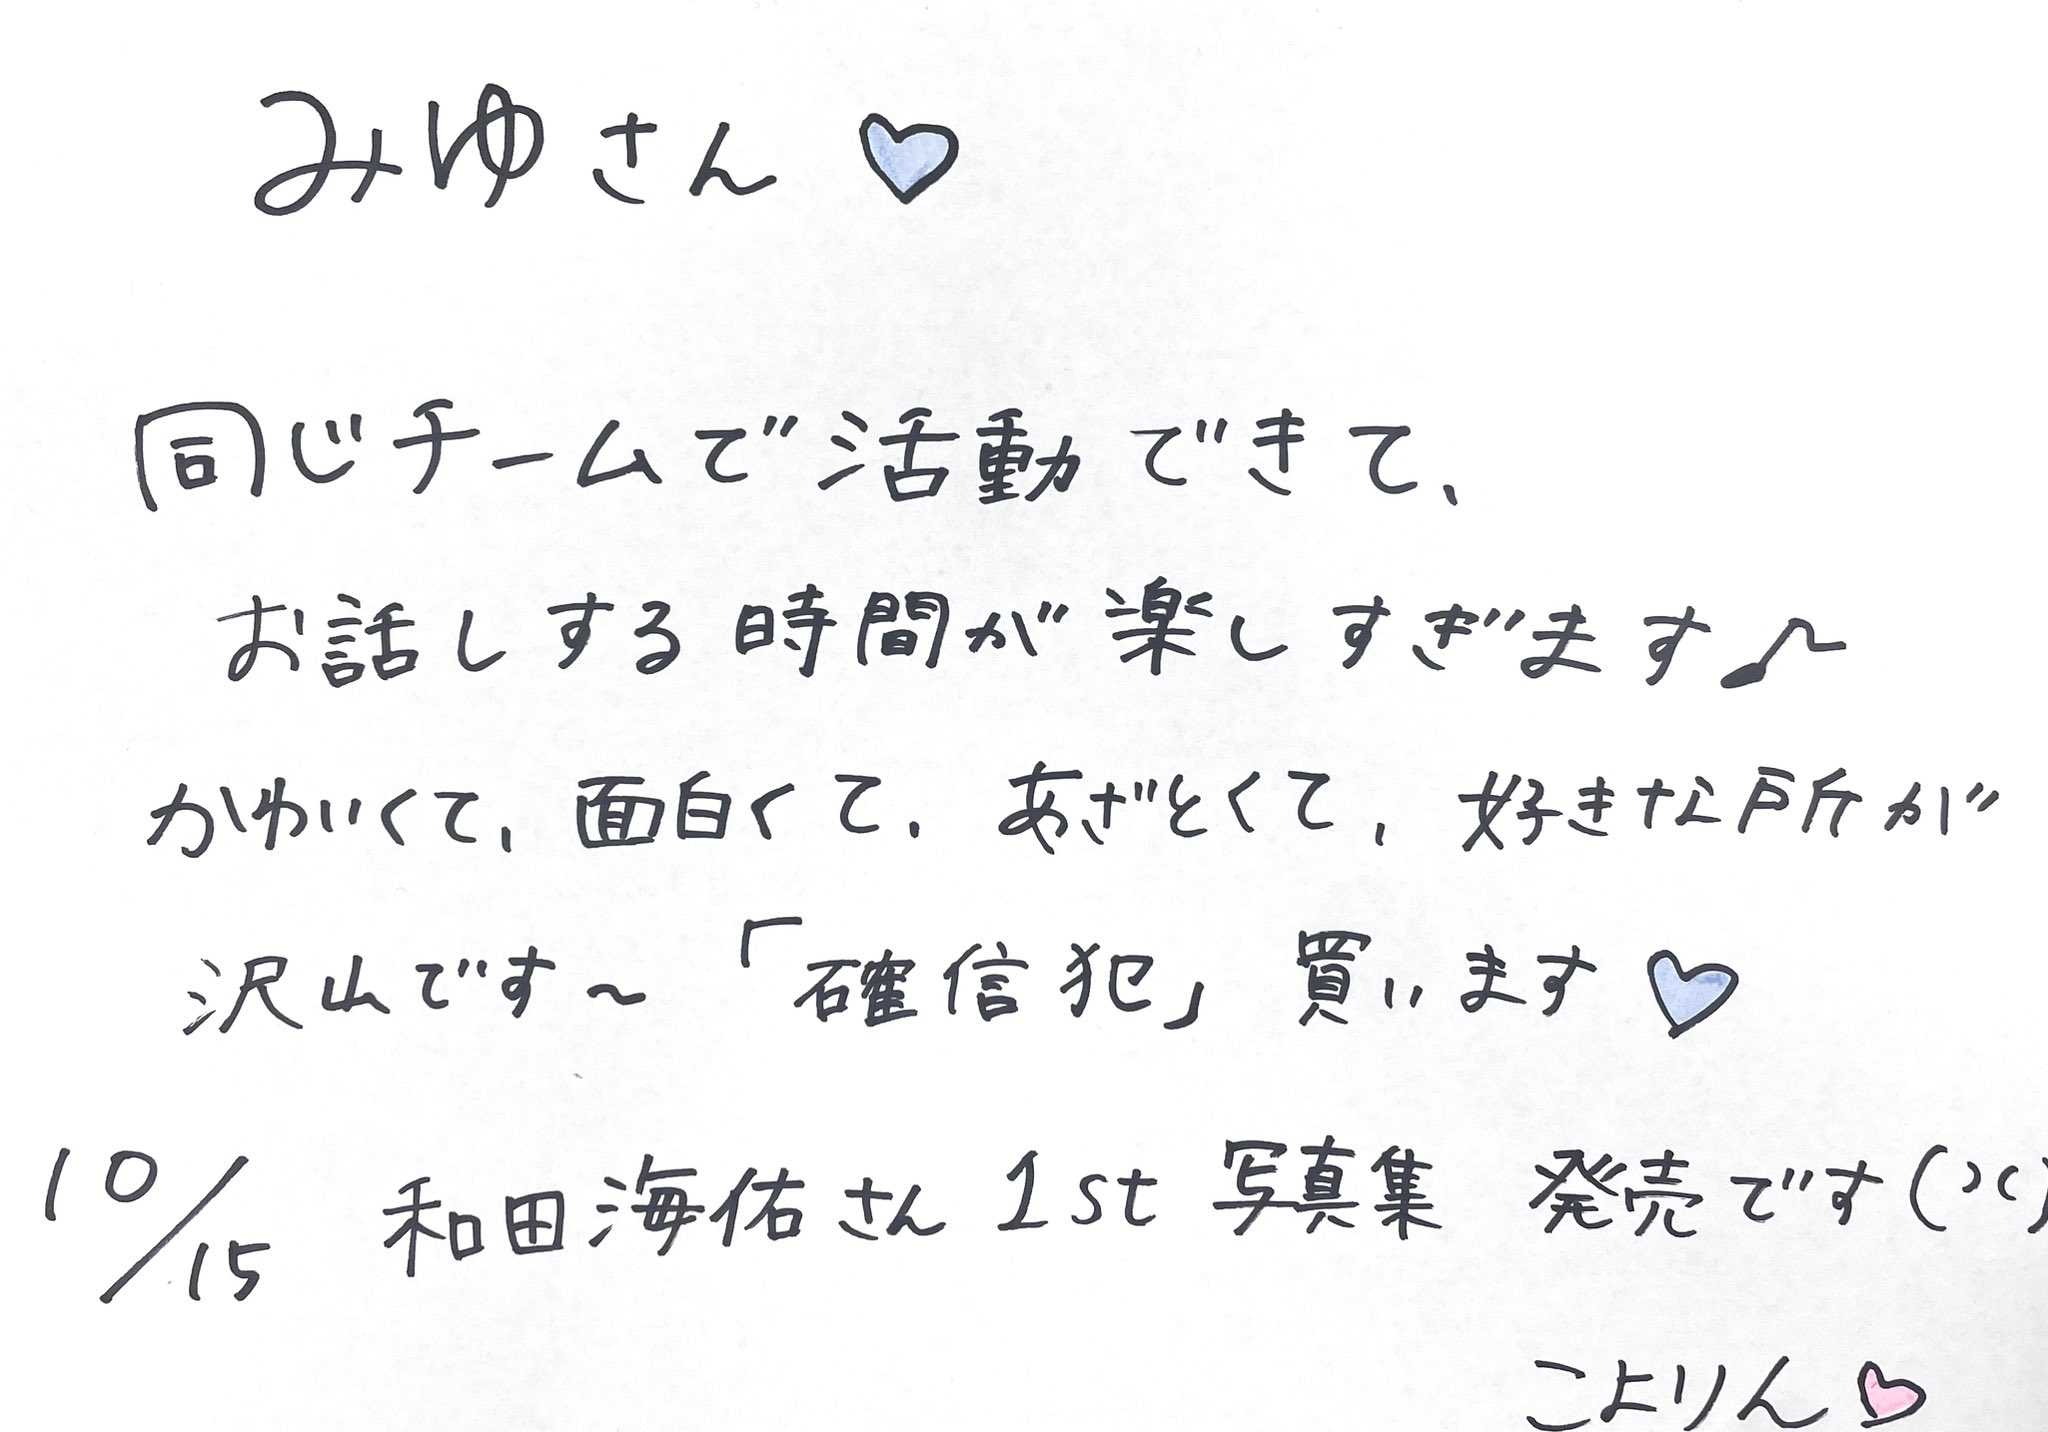 みゆさん♡
同じチームで活動できて、
お話しする時間が楽しすぎます♪
かわいくて、面白くて、あざとくて、好きな所が
沢山です〜「確信犯」買います♡
10/15 和田海佑さん 1st 写真集 発売です(><)
こよりん♡